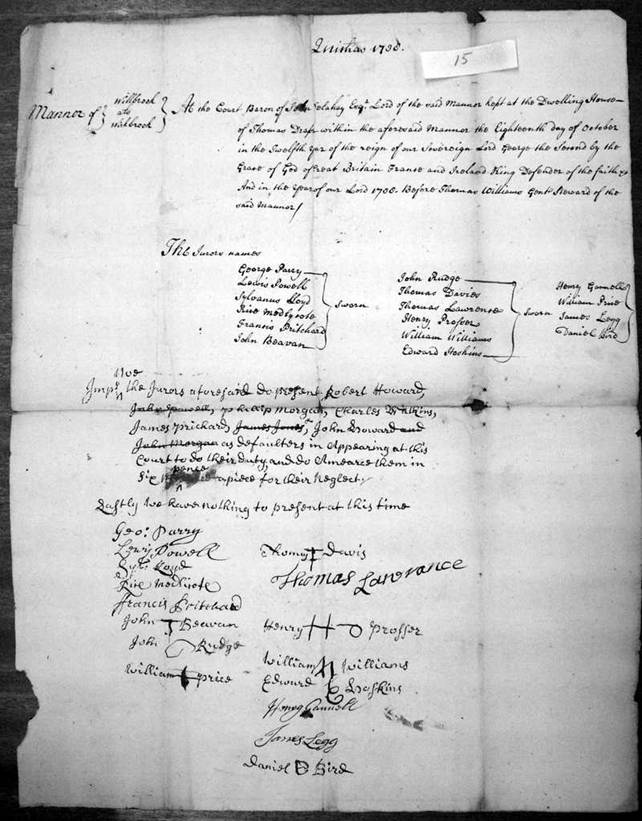 1738.
15
Mannor of Willbrook als Wallbrook At the Court Baron of John Esqr Lord of the said Mannor kept at the Dwelling House
of Thomas within the aforesaid Mannor the Eighteenth day of October
in the Twelfth year of the reign of our Sovereign Lord George the Second by the
Grace of God of Great Britain France and Ireland King Defender of the faith &c
And in the year of our Lord 1738. Before Thomas Williams Gent Steward of the
said Mannor
The Jurors names
George Parry
Lewis Powell
Sylvanus Lloyd
Rice Medlycote
Francis Pritchard
John Beavan
Sworn
John Rudge
Thomas Davies
Thomas Lawrence
Henry Prosser
William Williams
Edward Hoskins
Sworn
Henry Gamell
William Price
James Legg
Daniel Bird
Imps We the Jurors aforesaid do present Robert Howard,
John Powell, Phillip Morgan, Charles Watkins,
James Prichard, James Jones, John Howard and
John Morgan as defaulters in Appearing at this
Court to do their duty, and do Amearce them in
Six pence apiece for their Neglect,
Lastly We have nothing to present at this time
Geo: Parry
Lewis Powell
Syl: Loyd
Rice Medlicote
Francis Pritchard
John Beavan
John Rudge
William price
Thomas Davis
Thomas Lawrance
Henry H Prosser
William Williams
Edward Hoskins
Henry Gamell
James Legg
Daniel D Bird